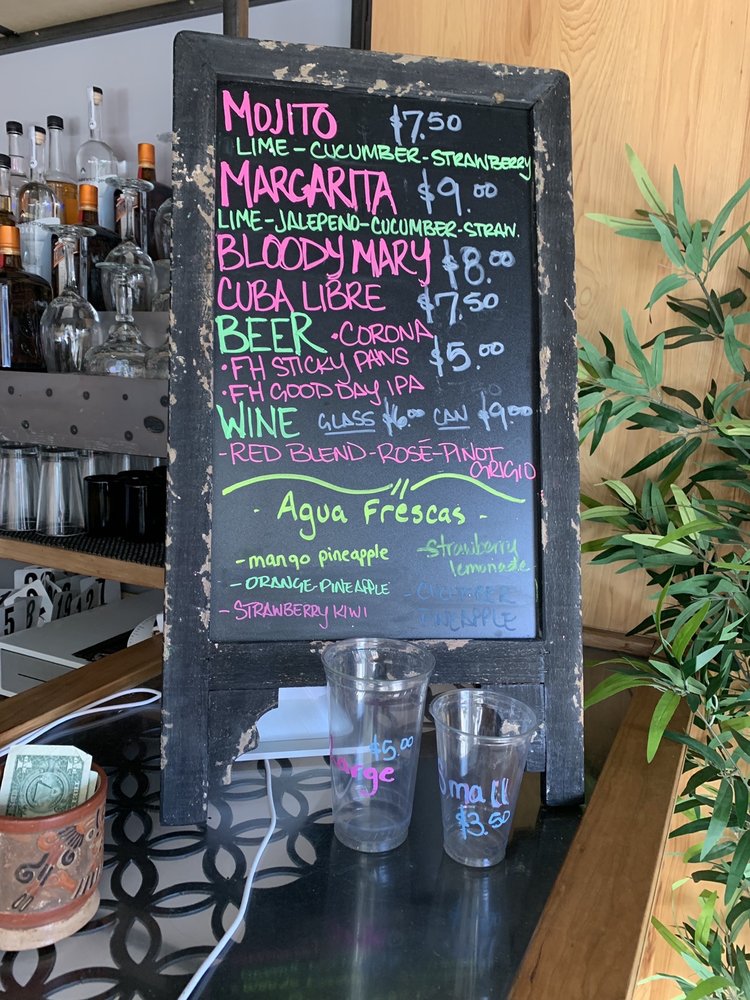 MOJITO $7.50
LIME - CUCUMBER - STRAWBERRY
MARGARITA $9.00
LIME-JALEPENO-CUCUMBER-STRAW.
BLOODY MARY $8.00
CUBA LIBRE $7.50
BEER • CORONA
• FH STICKY PAWS $5.00
• FH GOOD DAY IPA
WINE GLASS $6.00 CAN $9.00
- RED BLEND - ROSÉ - PINOT
GRIGIO
- Agua Frescas -
- mango pineapple
- ORANGE-PINEAPPLE
- STRAWBERRY KIWI
- Strawberry
lemonade
- CUCUMBER
PINEAPPLE
$5.00
Large
Small
$3.50
5 8